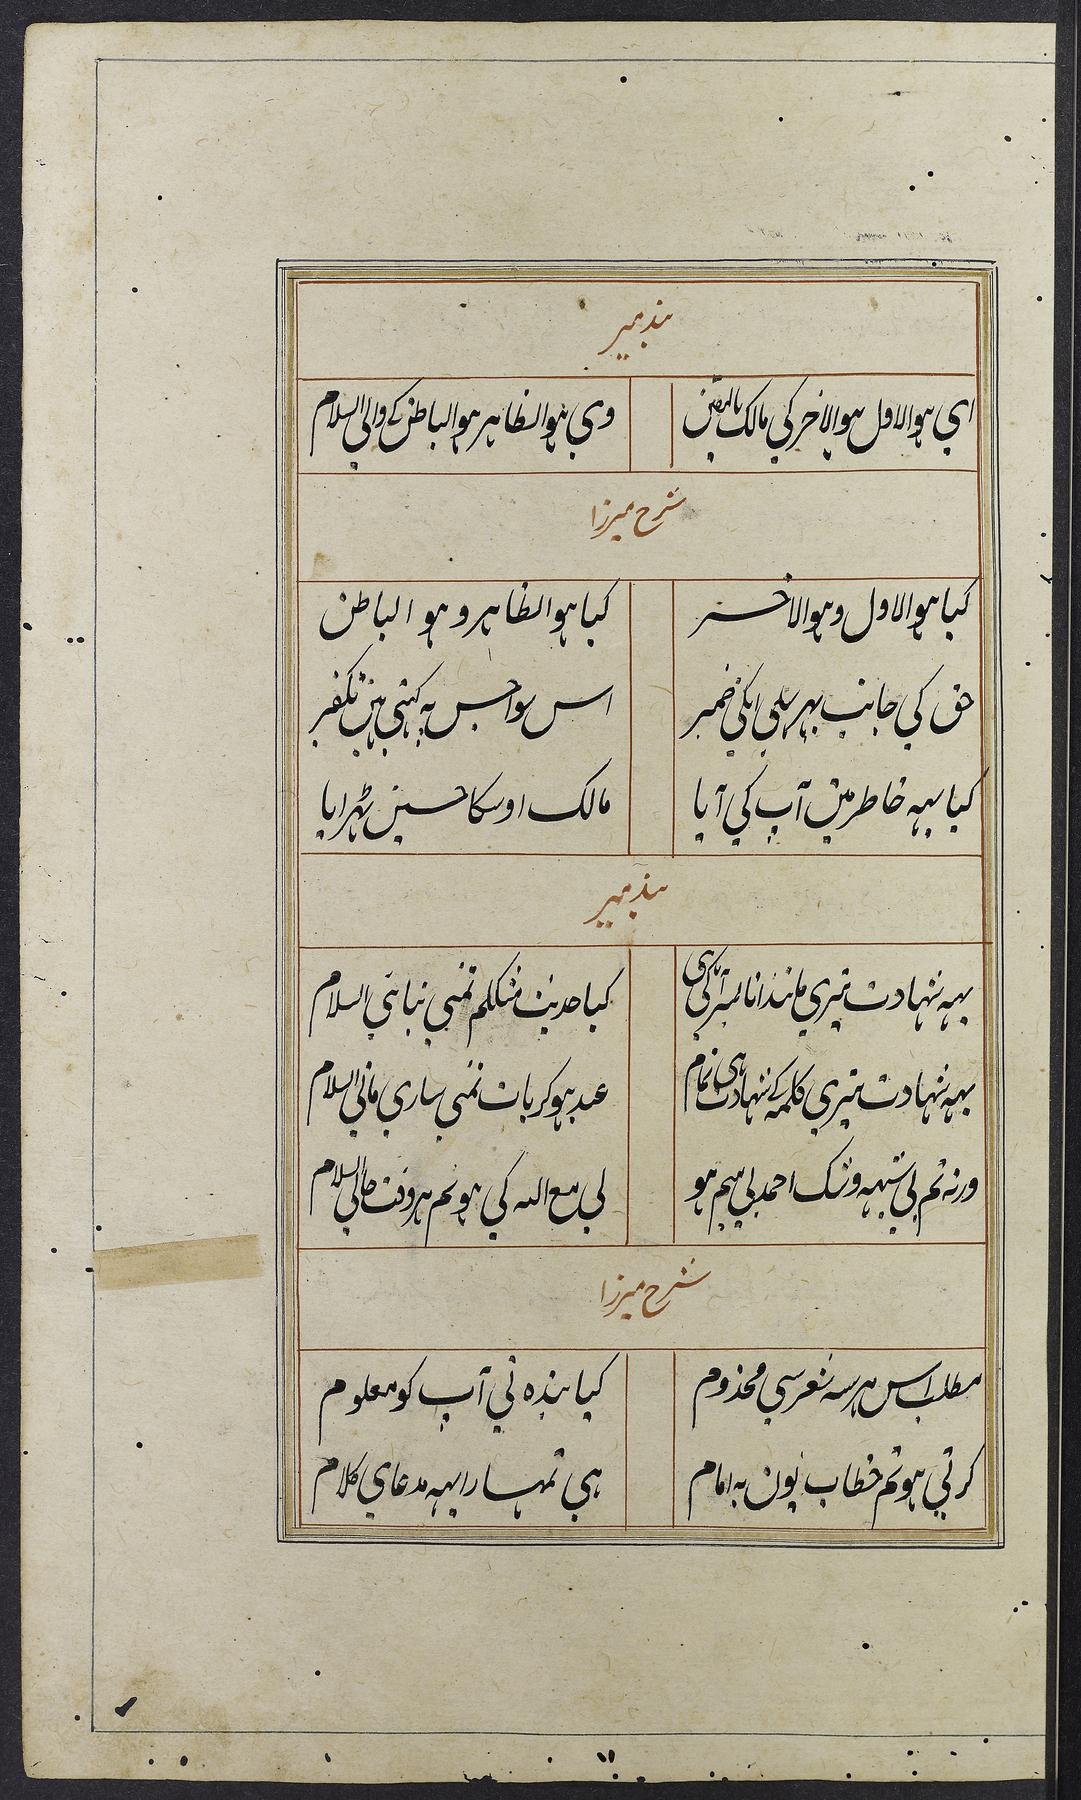 بند میر
ای هو الاول هو الاخر کی مالک بالیقین وی هو الظاهر هو الباطن کے والی السلام
شرح میرزا
کیا هو الاول و هو الاخر کیا هو الظاهر و هو الباطن
حق کی جانب پہر یلی انکی ضمیر اس سوا جس پہ کہتی ہین تکفیر
کیا یہہ خاطر مین آپ کی آیا مالک اوسکا حسین ٹہرایا
بند میر
یہہ شہادت تیری مانند انا بشر کی ہی کیا حدیث متکلم تمنی نباہی السلام
یہہ شہادت تیری کلمہ کے شہادت ہی تمام عبد ہو کر بات تمنی ساری مانی السلام
ورنہ تم بی شبہہ و شک احمد بی میم ہو لی مع اللہ کی ہو تم ہر وقت حالی السلام
شرح میرزا
مطلب اس ہر سہ شعر سی مخذوم کیا بندہ نی آپ کو معلوم
کرتی ہو تم خطاب یون بہ امام ہی تمہارا یہہ مدعای کلام